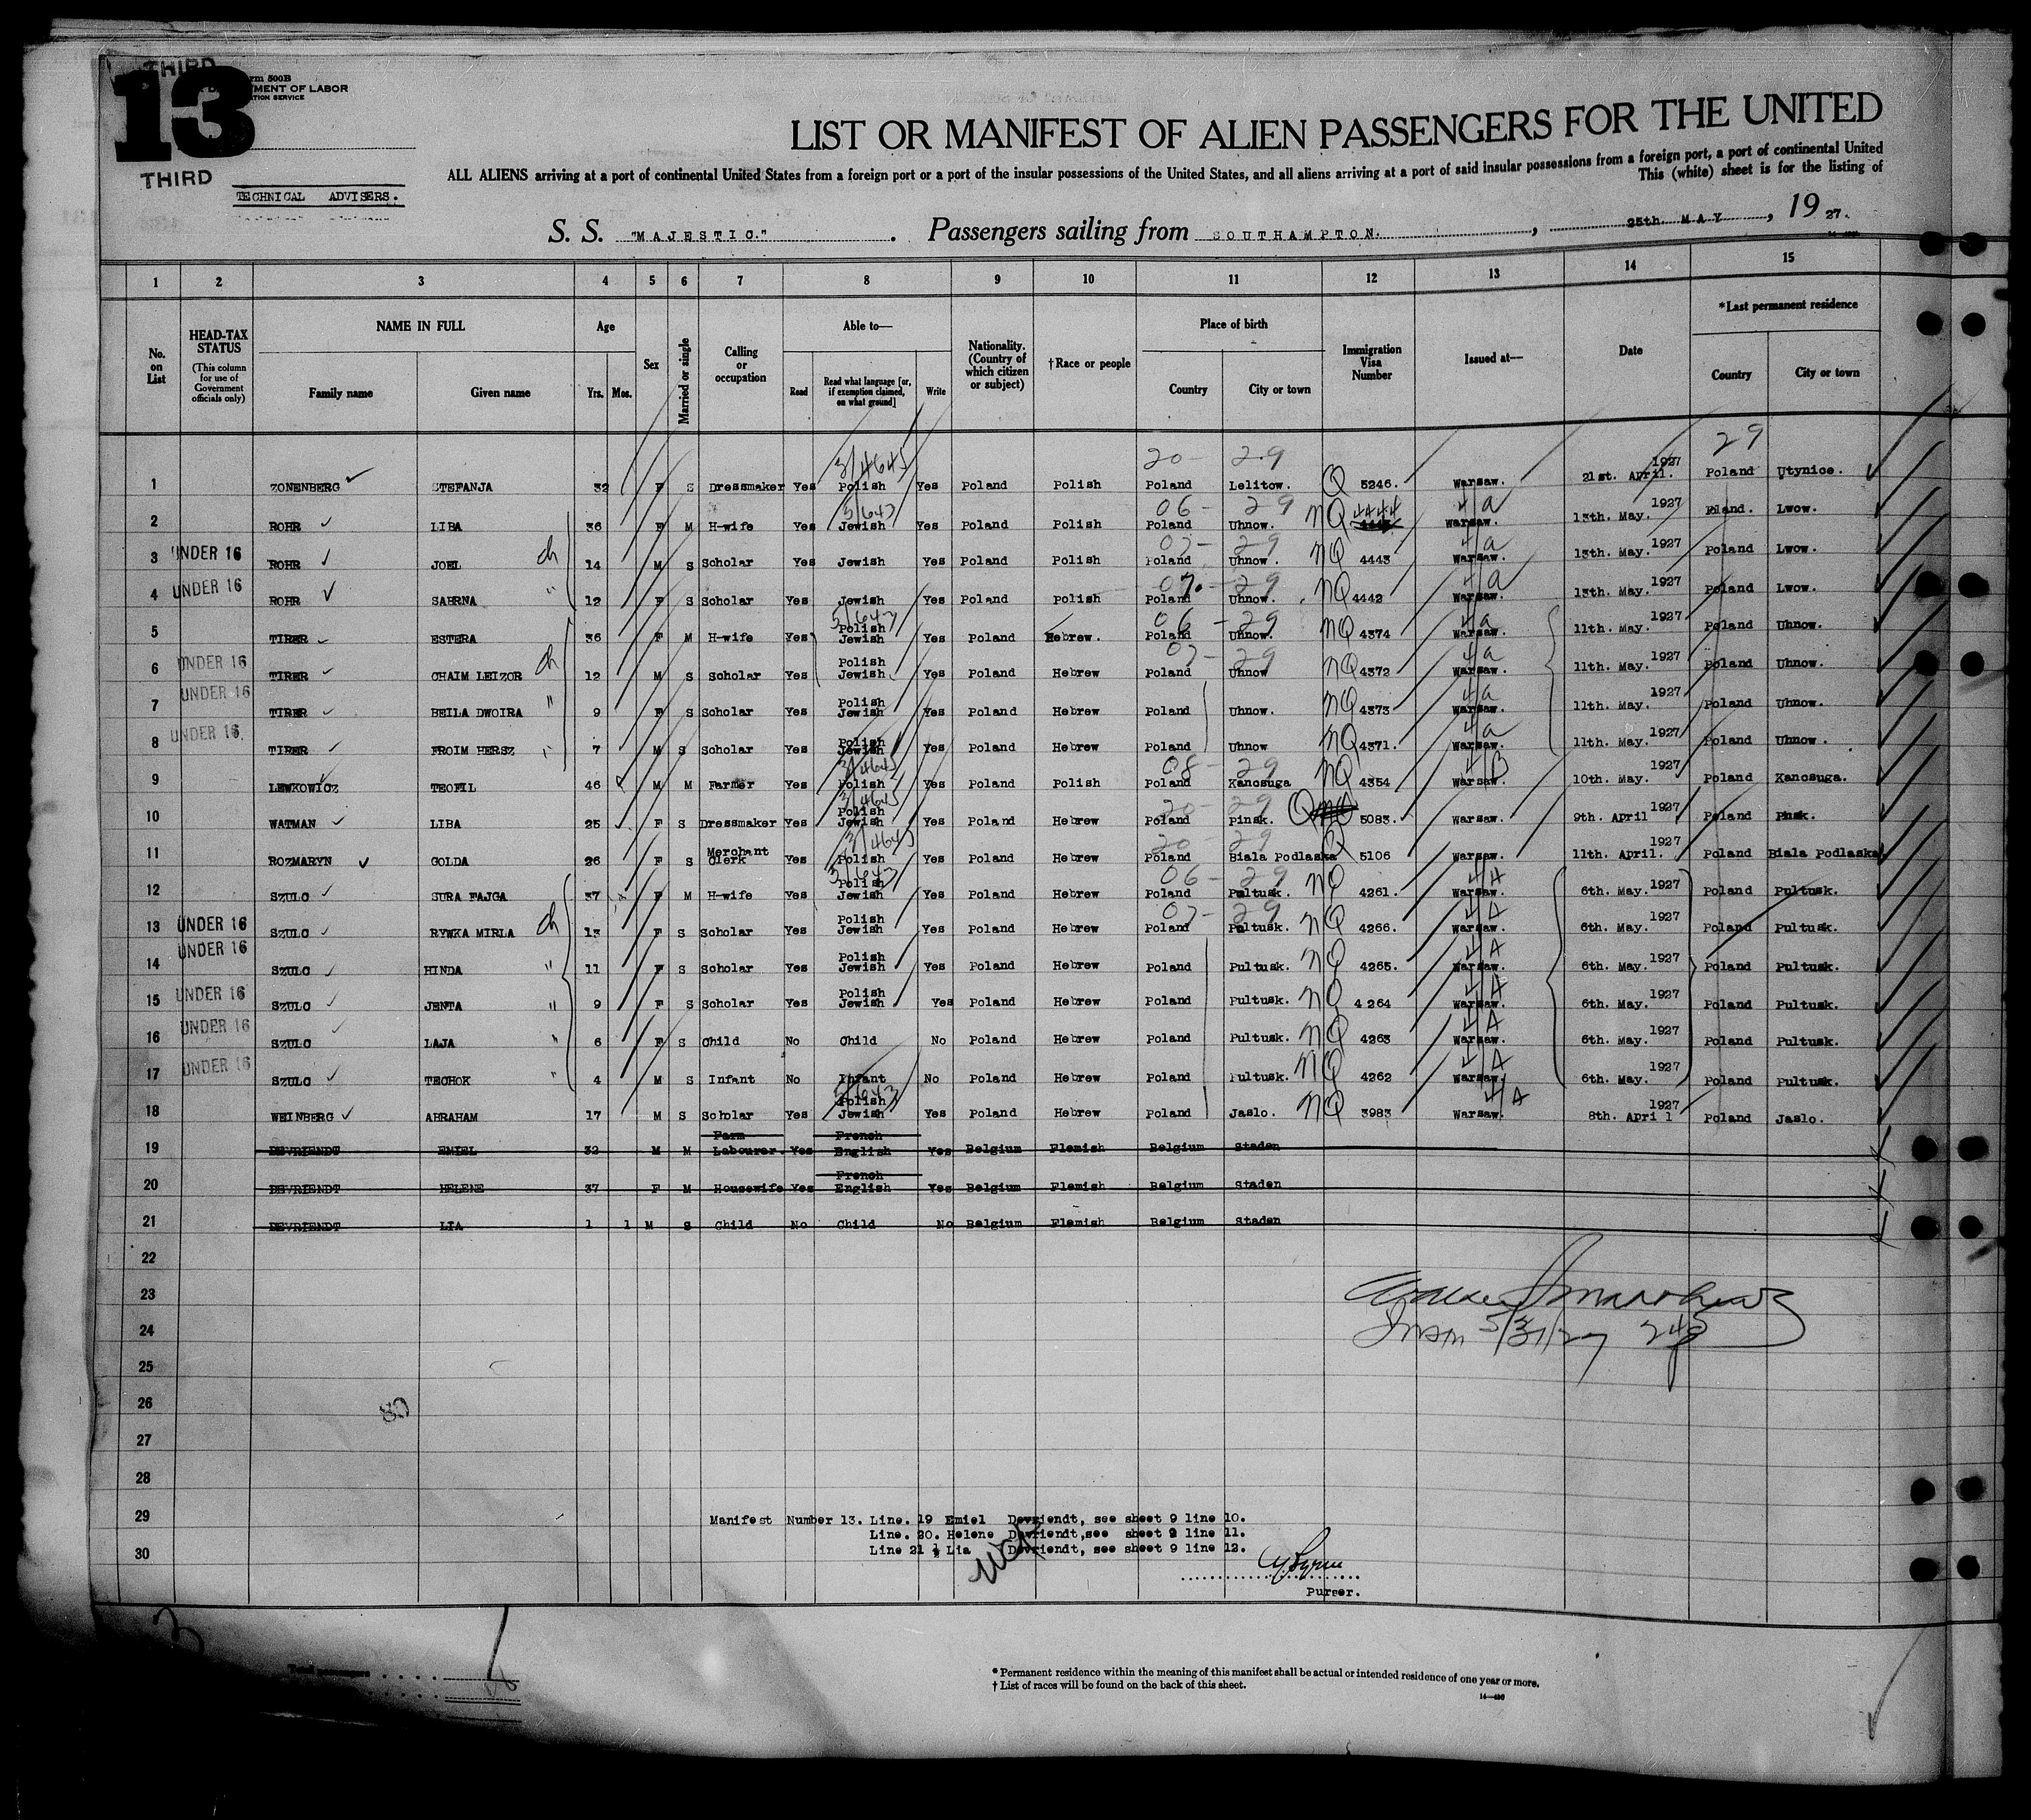 THIRD
13
rm 500B
MENT OF LABOR
TION SERVICE
THIRD
TECHNICAL ADVISERS.
LIST OR MANIFEST OF ALIEN PASSENGERS FOR THE UNITED
ALL ALIENS arriving at a port of continental United States from a foreign port or a part of the insular possessions of the United States, and all aliens arriving at a port of said insular possessions from a foreign port, a port of continental United
This (white) sheet is for the listing of
S. S. "MAJESTIC." . Passengers sailing from SOUTHAMPTON. , 25th. MAY , 19 27.
1 2 3 4 5 6 7 8 9 10 11 12 13 14 15
No. on List
HEAD-TAX STATUS (This column for use of Government officials only)
NAME IN FULL Family name Given name
Age Yrs. Mos.
Sex
Married or single
Calling or occupation
Able to— Read Read what language [or, if exemption claimed, on what ground] Write
Nationality. (Country of which citizen or subject)
†Race or people
Place of birth Country City or town
Immigration Visa Number
Issued at—
Date
*Last permanent residence Country City or town
29
3/4645 20- 29
1 ZONENBERG STEFANJA 32 F S Dressmaker Yes Polish Yes Poland Polish Poland Lelitow. Q 5246. Warsaw. 21st. April. 1927 Poland Utynice.
5/643 06- 29 4/a
2 ROHR LIBA 36 F M H-wife Yes Jewish Yes Poland Polish Poland Uhnow. NQ 4444 Warsaw. 13th. May. 1927 Pland. Lwow.
07- 29 4/a
3 UNDER 16 ROHR JOEL ch 14 M S Scholar Yes Jewish Yes Poland Polish Poland Uhnow. NQ 4443 Warsaw. 13th. May. 1927 Poland Lwow.
07- 29 4/a
4 UNDER 16 ROHR SABRNA " 12 F S Scholar Yes Jewish Yes Poland Polish Poland Uhnow. NQ 4442 Warsaw. 13th. May. 1927 Poland Lwow.
5/643 06 - 29 4/a
5 TIRER ESTERA 36 F M H-wife Yes Polish Jewish Yes Poland Hebrew. Poland Uhnow. NQ 4374 Warsaw. 11th. May. 1927 Poland Uhnow.
07- 29 4/a
6 UNDER 16 TIRER CHAIM LEIZOR ch 12 M S Scholar Yes Polish Jewish Yes Poland Hebrew Poland Uhnow NQ 4372 Warsaw. 11th. May. 1927 Poland Uhnow.
4/a
7 UNDER 16 TIRER BEILA DWOIRA " 9 F S Scholar Yes Polish Jewish Yes Poland Hebrew Poland Uhnow. NQ 4373 Warsaw. 11th. May. 1927 Poland Uhnow.
4/a
8 UNDER 16 TIRER FROIM HERSZ " 7 M S Scholar Yes Polish Jewish Yes Poland Hebrew Poland Uhnow NQ 4371. Warsaw. 11th. May. 1927 Poland Uhnow.
3/4645 08- 29 4/B
9 LEWKOWICZ TEOFIL 46 M M Farmer Yes Polish Yes Poland Polish Poland Kancsuga NQ 4354 Warsaw. 10th. May. 1927 Poland Kancsuga.
3/4645 20- 29
10 WATMAN LIBA 25 F S Dressmaker Yes Polish Jewish Yes Poland Hebrew Poland Pinsk. Q 5083. Warsaw. 9th. April 1927 Poland Pinsk.
3/4645 20- 29
11 ROZMARYN GOLDA 26 F S Merchant Clerk Yes Polish Yes Poland Hebrew Poland Biala Podlaska Q 5106 Warsaw. 11th. April. 1927 Poland Biala Podlaska
5/643 06- 29 4/A
12 SZULC SURA FAJGA 37 F M H-wife Yes Polish Jewish Yes Poland Hebrew Poland Pultusk. NQ 4261. Warsaw. 6th. May. 1927 Poland Pultusk.
07- 29 4/A
13 UNDER 16 SZULC RYWKA MIRLA ch 13 F S Scholar Yes Polish Jewish Yes Poland Hebrew Poland Pultusk. NQ 4266. Warsaw. 6th. May. 1927 Poland Pultusk.
4/A
14 UNDER 16 SZULC HINDA " 11 F S Scholar Yes Polish Jewish Yes Poland Hebrew Poland Pultusk. NQ 4265. Warsaw. 6th. May. 1927 Poland Pultusk.
4/A
15 UNDER 16 SZULC JENTA " 9 F S Scholar Yes Polish Jewish Yes Poland Hebrew Poland Pultusk. NQ 4264 Warsaw. 6th. May. 1927 Poland Pultusk.
4/A
16 UNDER 16 SZULC LAJA " 6 F S Child No Child No Poland Hebrew Poland Pultusk. NQ 4263 Warsaw. 6th. May. 1927 Poland Pultusk.
4/A
17 UNDER 16 SZULC TECHOK " 4 M S Infant No Infant No Poland Hebrew Poland Pultusk. NQ 4262 Warsaw. 6th. May. 1927 Poland Pultusk.
5/643 4/A
18 WEINBERG ABRAHAM 17 M S Scholar Yes Polish Jewish Yes Poland Hebrew Poland Jaslo. NQ 3983 Warsaw. 8th. April 1927 Poland Jaslo.
19 DEVRIENDT EMIEL 32 M M Farm Labourer. Yes French English Yes Belgium Flemish Belgium Staden
20 DEVRIENDT HELENE 37 F M Housewife Yes French English Yes Belgium Flemish Belgium Staden
21 DEVRIENDT LIA 1 1 M S Child No Child No Belgium Flemish Belgium Staden
22
23
24 5/31/27 245
25
26 80
27
28
29 Manifest Number 13. Line. 19 Emiel Devriendt, see sheet 9 line 10.
Line. 20. Helene Devriendt, see sheet 9 line 11.
30 Line 21 Lia Devriendt, see sheet 9 line 12.
Purser.
3
Total passengers
* Permanent residence within the meaning of this manifest shall be actual or intended residence of one year or more.
† List of races will be found on the back of this sheet.
14—430